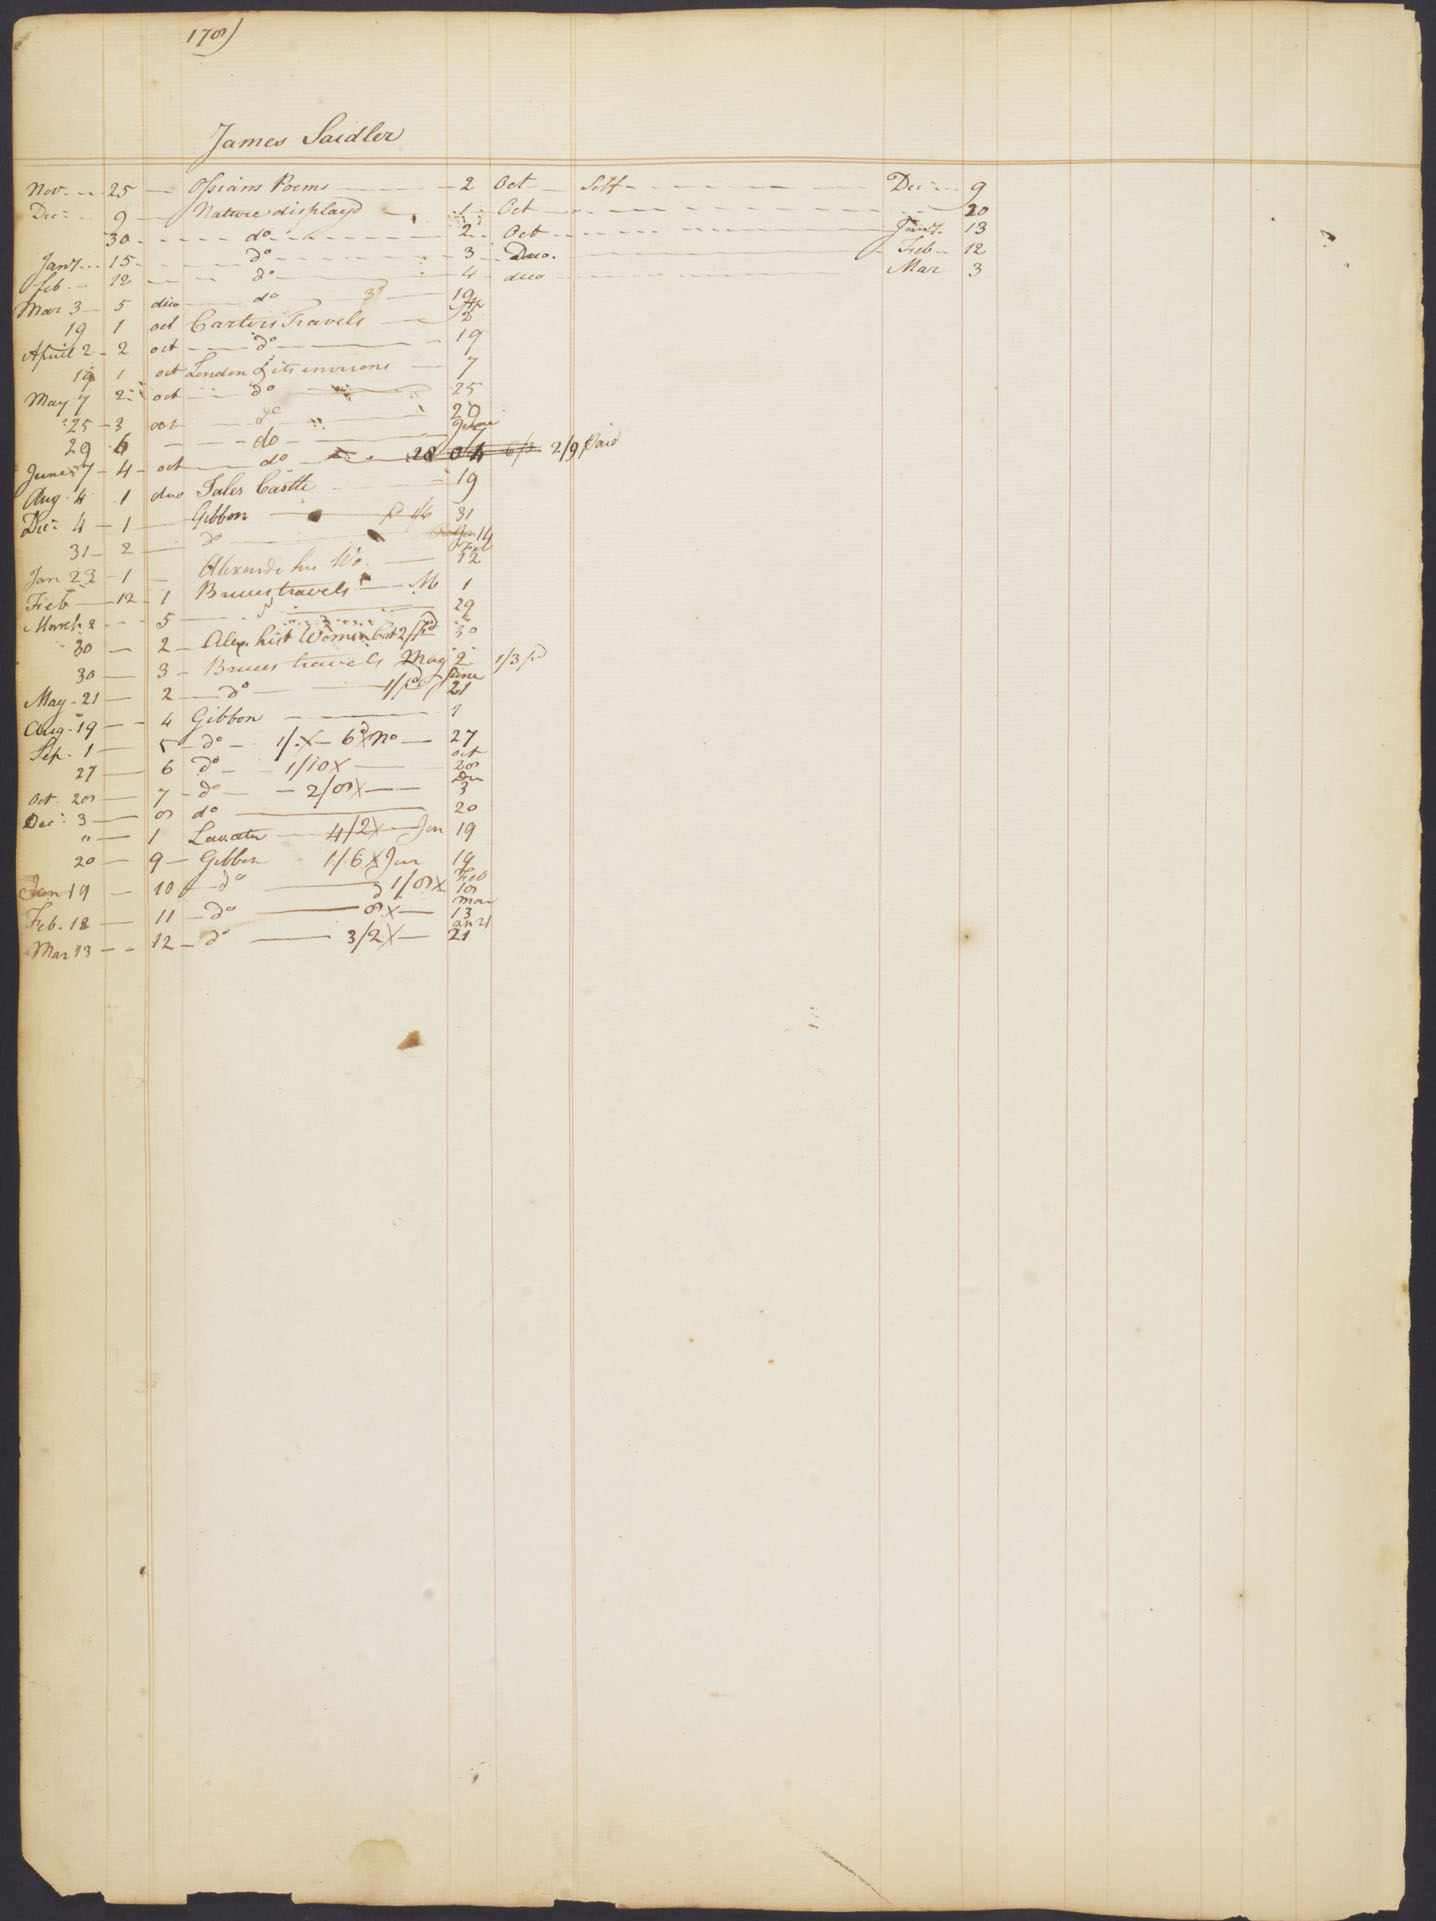 178)
James Saidler
Nov 25 Ossians Poems 2 Oct Self Dec 9
Dec 9 Nature displayd 1 Oct 20
30 do 2 Oct Jany 13
Jany 15 do 3 Duo. Feb 12
Feb 12 do 4 duo Mar 3
Mar 3 5 duo do 19
19 1 oct Carters Travels Ap 2
April 2 2 oct do 19
19 1 oct London & its environs 7
May 7 2 oct do 25
25 3 oct do 29
29 6 do June 7
June 7 4 oct do 28 2/9 Paid
Aug 4 1 duo Tales Castle 19
Dec 4 1 Gibbon 31
31 2 do Jan 14
Jan 23 1 Alexandr his Wo. Feb 12
Feb 12 1 Bruces travels M 1
March 2 5 29
30 2 Alex. hist Women Oct 2/ pd 30
30 3 Bruces travels May 2 1/3 pd
May 21 2 do 1/ pd June 21
Aug 19 4 Gibbon 1
Sep. 1 5 do 1/. X 6d X no 27
27 6 do 1/10 X Oct 28
Oct. 28 7 do 2/8 X Dec 3
Dec. 3 8 do 20
" 1 Lavater 4/2 X Jan 19
20 9 Gibbon 1/6 X Jan 19
Jan 19 10 do 1/8 X Feb 18
Feb. 18 11 do 8d X Mar 13
Mar 13 12 do 3/2 X 21